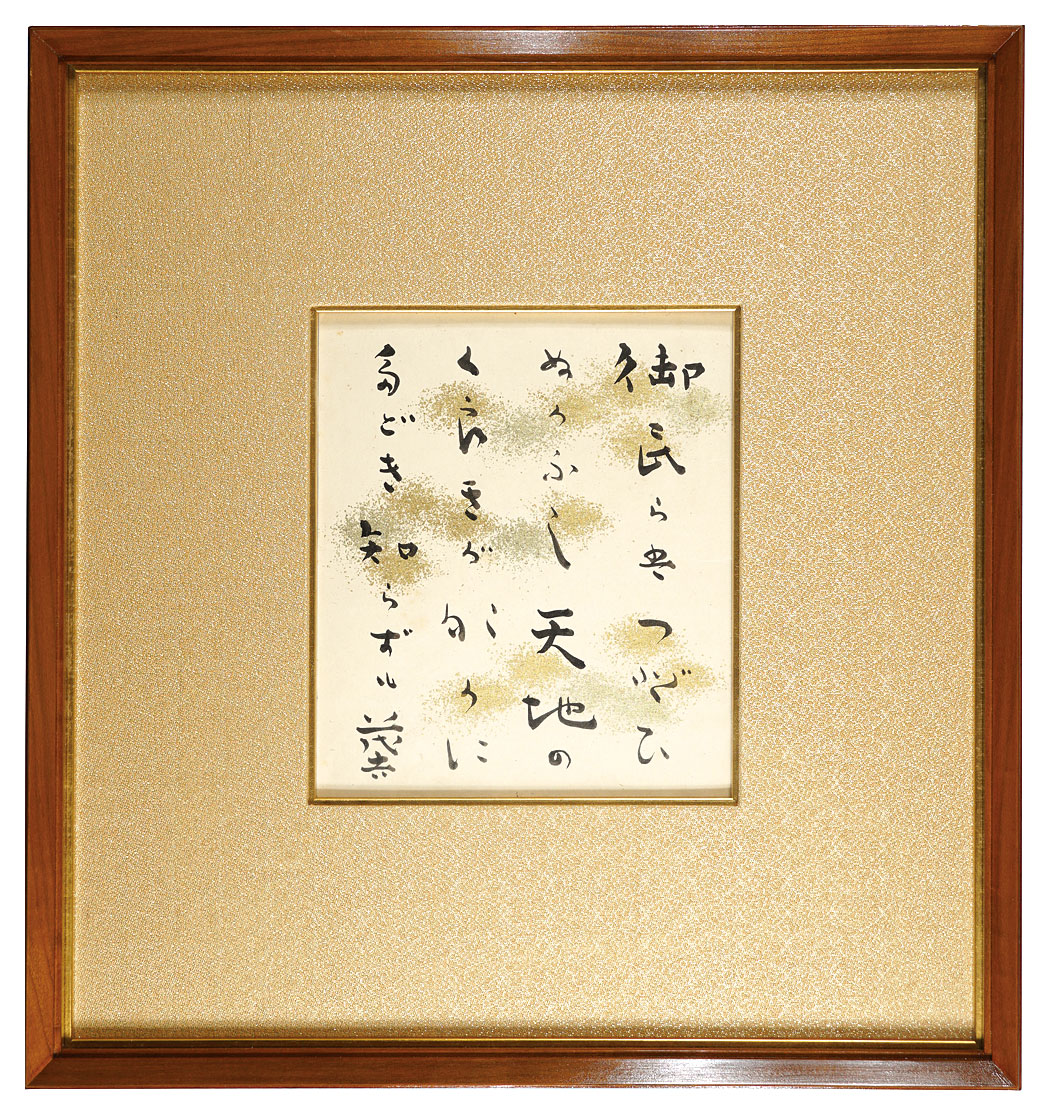 御民らはつどひ
ぬかふし天地の
くらきがなかに
たどき知らずも 茂吉